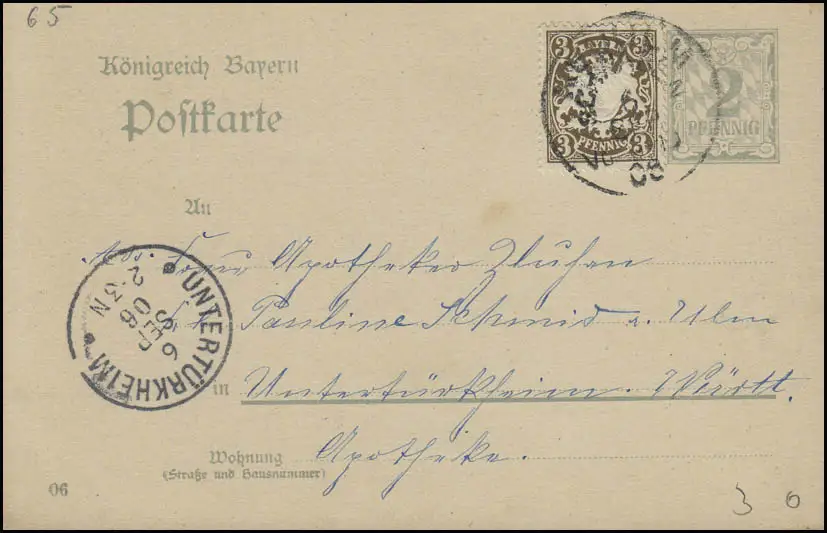 65
Königreich Bayern
Postkarte
3 BAYERN 3
3 PFENNIG 3
2
PFENNIG
SEP
06
An
Frau Apotheker
Pauline Schmid a. Ulm
UNTERTÜRKHEIM
6 SEP 06
2 3 N
in Untertürkheim. Württ.
Wohnung
(Straße und Hausnummer)
Apotheke.
06
3 0